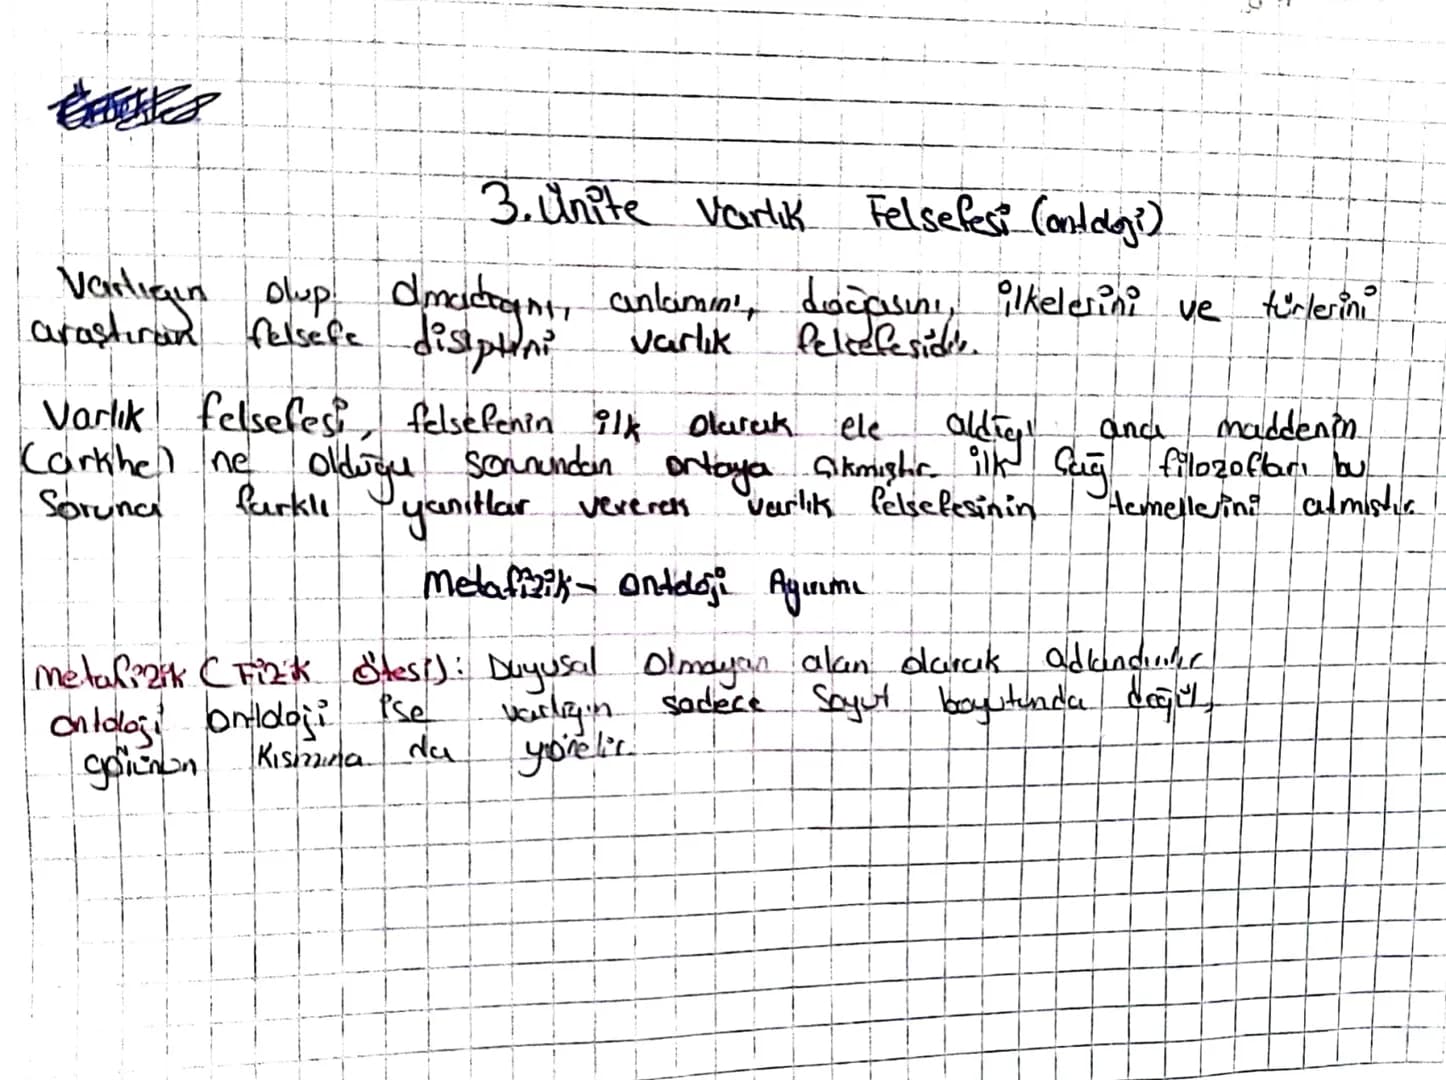 3. Ünite Varlık Felsefesi (ontoloji)
Varlığın olup olmadığını, anlamını, doğasını, ilkelerini ve türlerini
araştıran felsefe disiplini varlık felsefesidir.
Varlık felsefesi, felsefenin ilk olarak ele aldığı ana maddenin
(arkhe) ne olduğu sorunundan ortaya çıkmıştır ilk Çağ filozofları bu
Soruna farklı yanıtlar vererek varlık felsefesinin temellerini atmıştır.
Metafizik - ontoloji Ayırımı
Metafizik (Fizik ötesi): Duyusal Olmayan alan olarak adlandırılır
ontoloji ontoloji ise varlığın sadece Soyut boyutunda değil,
görünen Kısmına da yönelir.